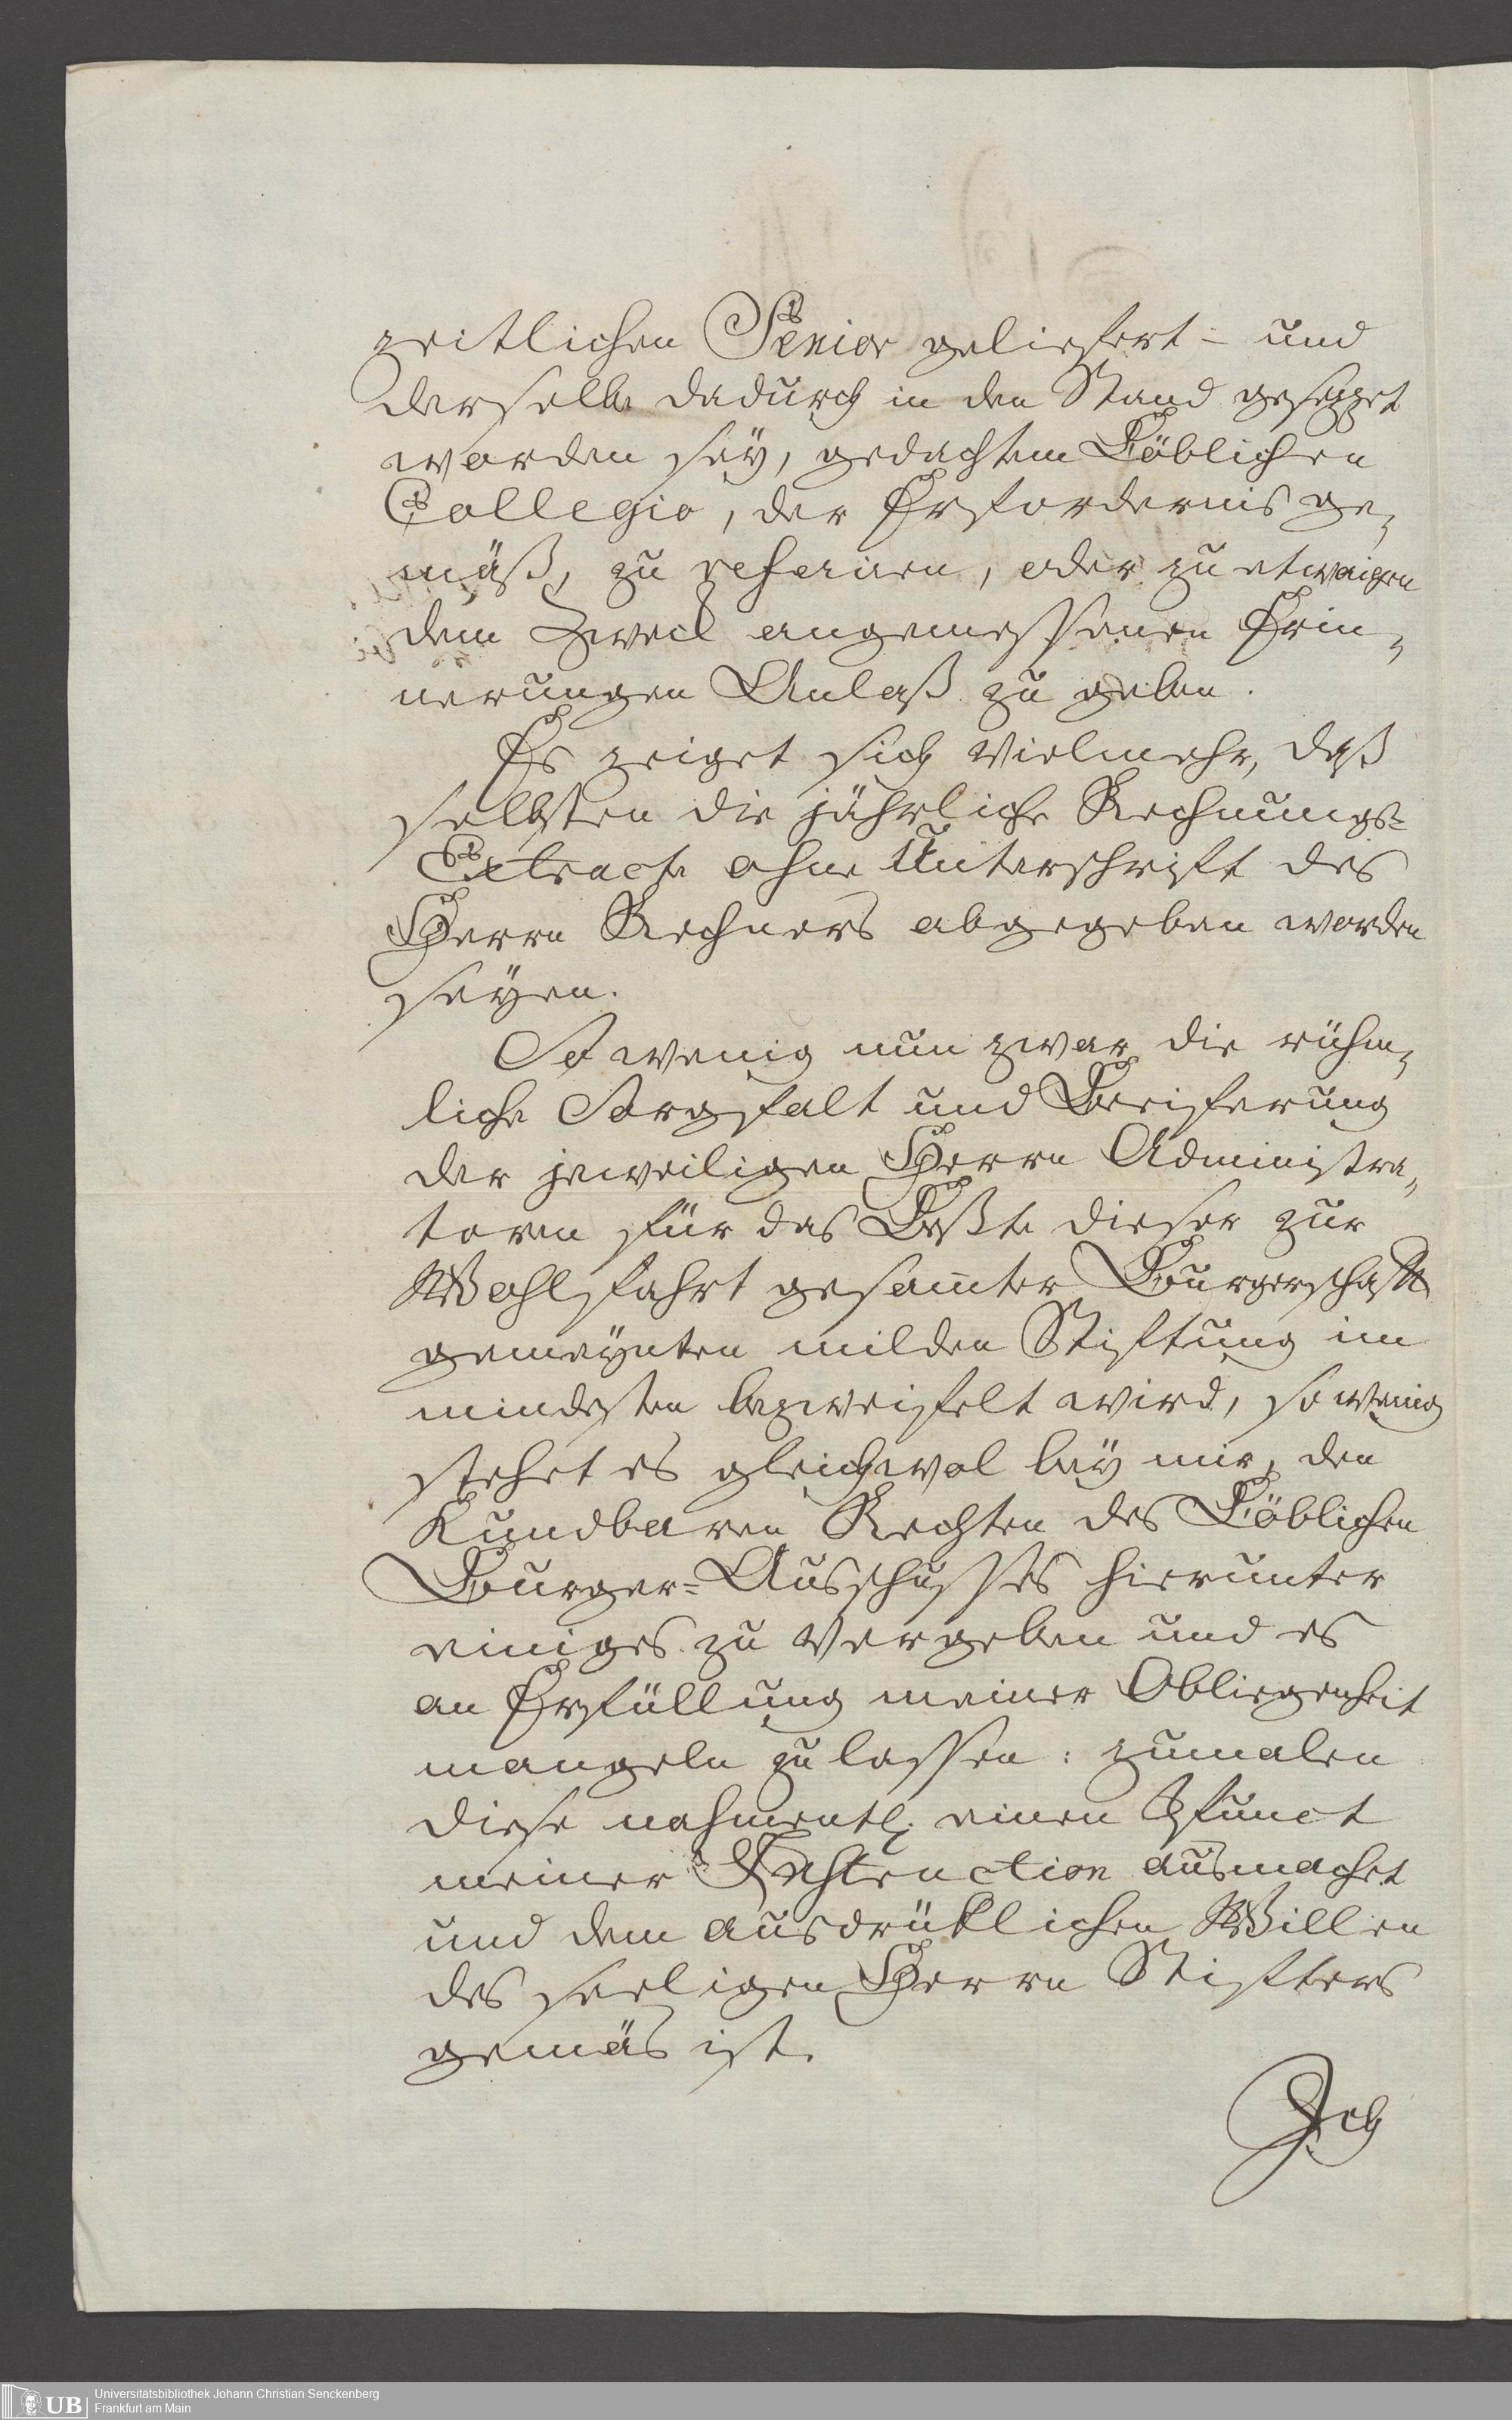 zeitlichen Senior geliefert- und
derselbe dadurch in den Stand gesezzet
worden seÿ, gedachtem Löblichen
Collegio, der Erfordernis ge„
mäß, zu referiren, oder zu etwaigen
dem Zweck angemessenen Erin„
nerungen Anlaß zu geben.
Es zeiget sich vielmehr, daß
selbsten die jährliche Rechnungs-
Extracte ohne Unterschrift des
Herrn Rechners abgegeben worden
seÿen.
So wenig nun zwar die rühm„
liche Sorgfalt und Beeiferung
der jeweiligen Herrn Administra„
toren für das Beßte dieser zur
Wohlfahrt gesam̅ter Burgerschafft
gemeÿnten milden Stiftung im
mindesten bezweifelt wird, so wenig
stehet es gleichwol beÿ mir, den
Kundbaren Rechten des Löblichen
Burger-Ausschusses hierunter
einiges zu vergeben und es
an Erfüllung meiner Obliegenheit
mangeln zu lassen: zumalen
diese nahmentl. einen Pfunct
meiner Instruction ausmachet
und dem ausdrüklichen Willen
des seeligen Herrn Stifters
gemäs ist.
Ich
Universitätsbibliothek Johann Christian Senckenberg
Frankfurt am Main
UB